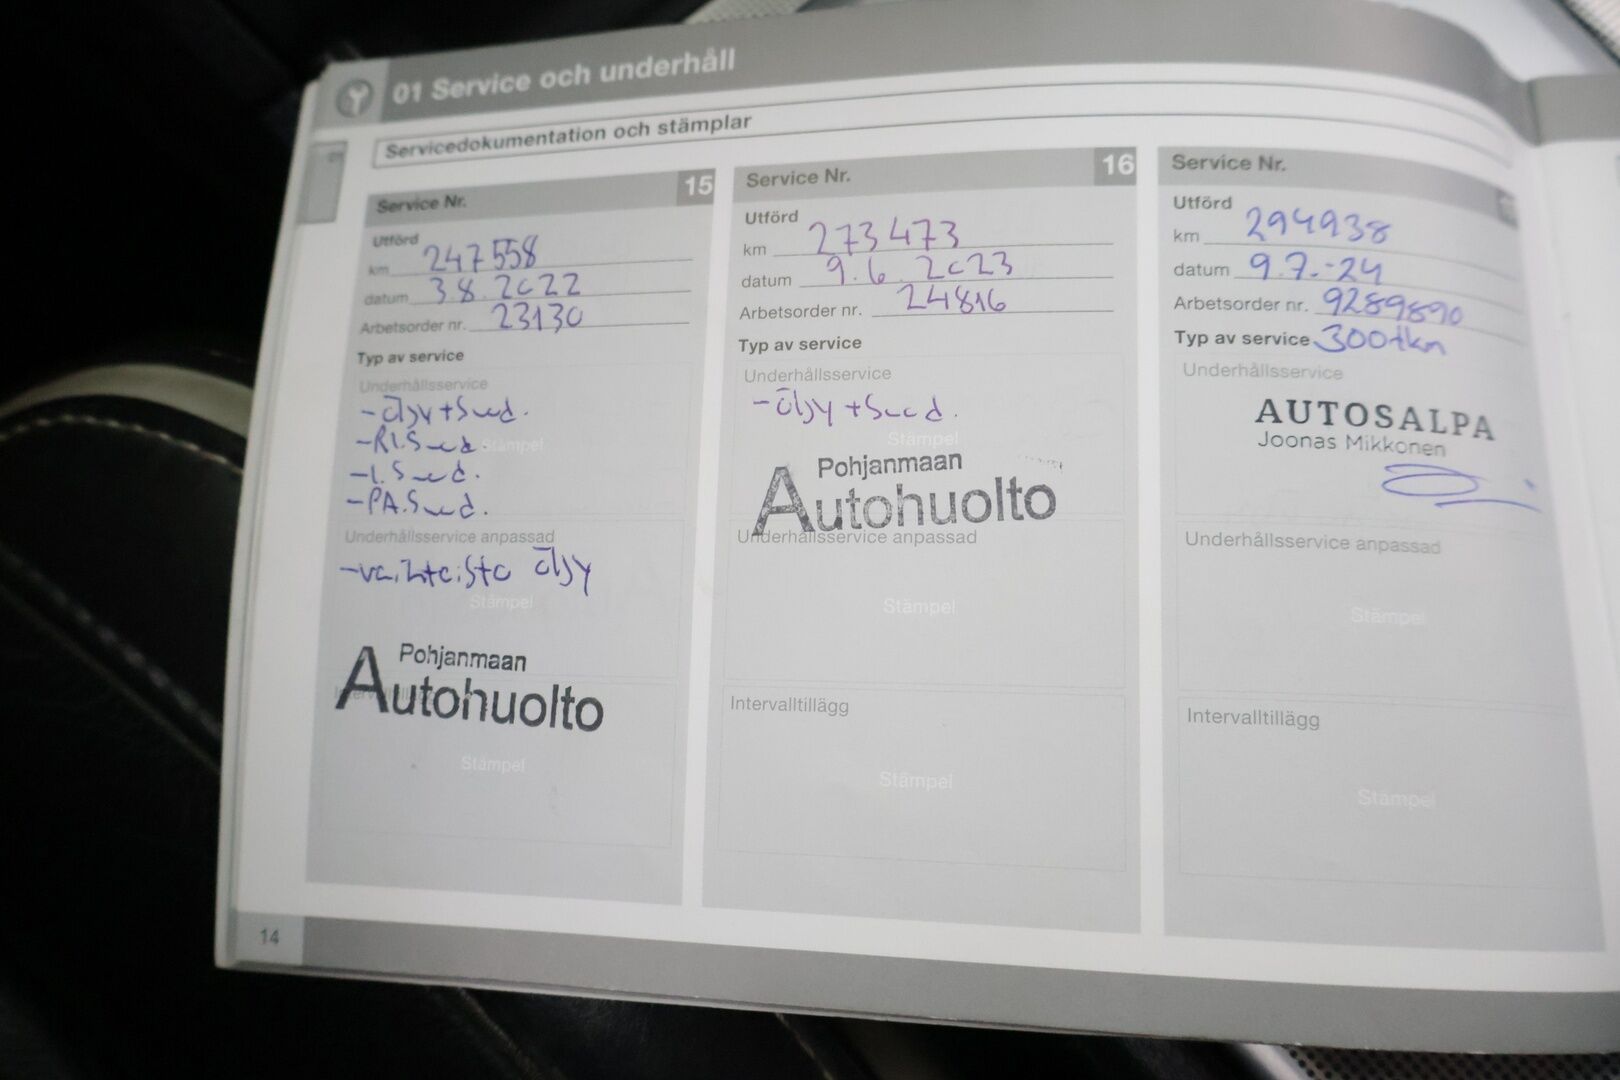 01 Service och underhåll
Servicedokumentation och stämplar
Service Nr. 15
Utförd
km 247558
datum 3.8.2022
Arbetsorder nr. 23130
Typ av service
Underhållsservice
-öljy+suod.
Stämpel
-RI.Suod.
-I.Suod.
-PA.Suod.
Underhållsservice anpassad
-vaihteisto öljy
Stämpel
Pohjanmaan
Autohuolto
Stämpel
Service Nr. 16
Utförd
km 273473
datum 9.6.2023
Arbetsorder nr. 24816
Typ av service
Underhållsservice
-öljy+suod.
Stämpel
Pohjanmaan
Autohuolto
Underhållsservice anpassad
Stämpel
Intervalltillägg
Stämpel
Service Nr.
Utförd
km 294938
datum 9.7.-24
Arbetsorder nr. 9289890
Typ av service 300tkm
Underhållsservice
AUTOSALPA
Joonas Mikkonen
Underhållsservice anpassad
Stämpel
Intervalltillägg
Stämpel
14